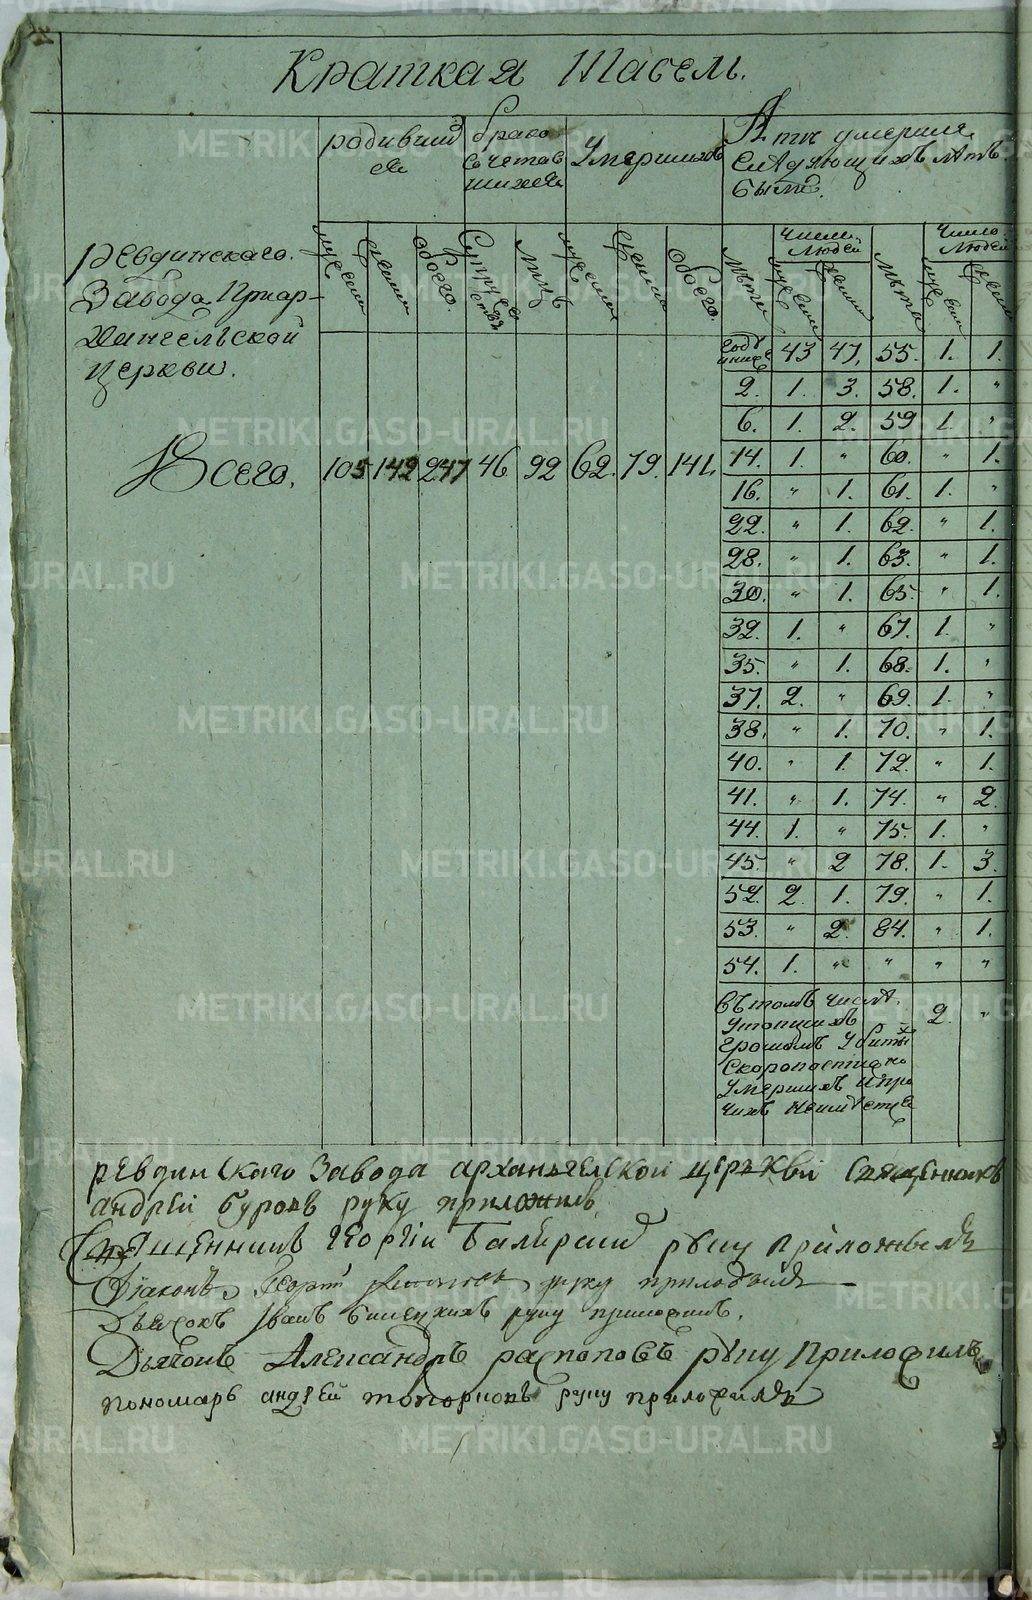 Краткая Табель.
родивши
ся
брако
сочетав
шихся
Умершихъ
лѣты умершіе
слѣдующихъ лѣтъ
были.
мужеска
женска
обоего.
Супруже
ствъ
лицъ
мужеска
женска
обоего.
лѣты
число
людей
мужеска
женска
лѣты
число
людей
мужеска
женска
Ревдинскаго
Завода Приар-
хангельской
церкви.
Всего. 105 142 247 46 92 62. 79. 141.
годъ
ниже 43 47. 55. 1. 1.
2. 1. 3. 58. 1. "
6. 1. 2. 59 1. "
14. 1. " 60. " 1.
16. " 1. 61. 1. "
22. " 1. 62. " 1.
28. " 1. 63. " 1.
30. " 1. 65. " 1.
32. 1. " 67. 1. "
35. " 1. 68. 1. "
37. 2. " 69. 1. "
38. " 1. 70. " 1.
40. " 1. 72. " 1.
41. " 1. 74. " 2.
44. 1. " 75. 1. "
45. " 2 78. 1. 3.
52. 2. 1. 79. " 1.
53. " 2. 84. " 1.
54. 1. " " " "
въ томъ числѣ
утопшихъ 2. "
громомъ убиты
скоропостижно
умершихъ и про
чихъ неимѣетца
ревдинскаго завода архангелской церкви священникъ
андрей буровъ руку приложилъ
Священникъ Георгій руку приложилъ
Діаконъ Георгі руку приложилъ
Дьячокъ Иванъ руку приложилъ.
Дьячокъ Александръ распоповъ руку приложилъ
пономарь андрей топорковъ руку приложилъ
METRIKI.GASO-URAL.RU